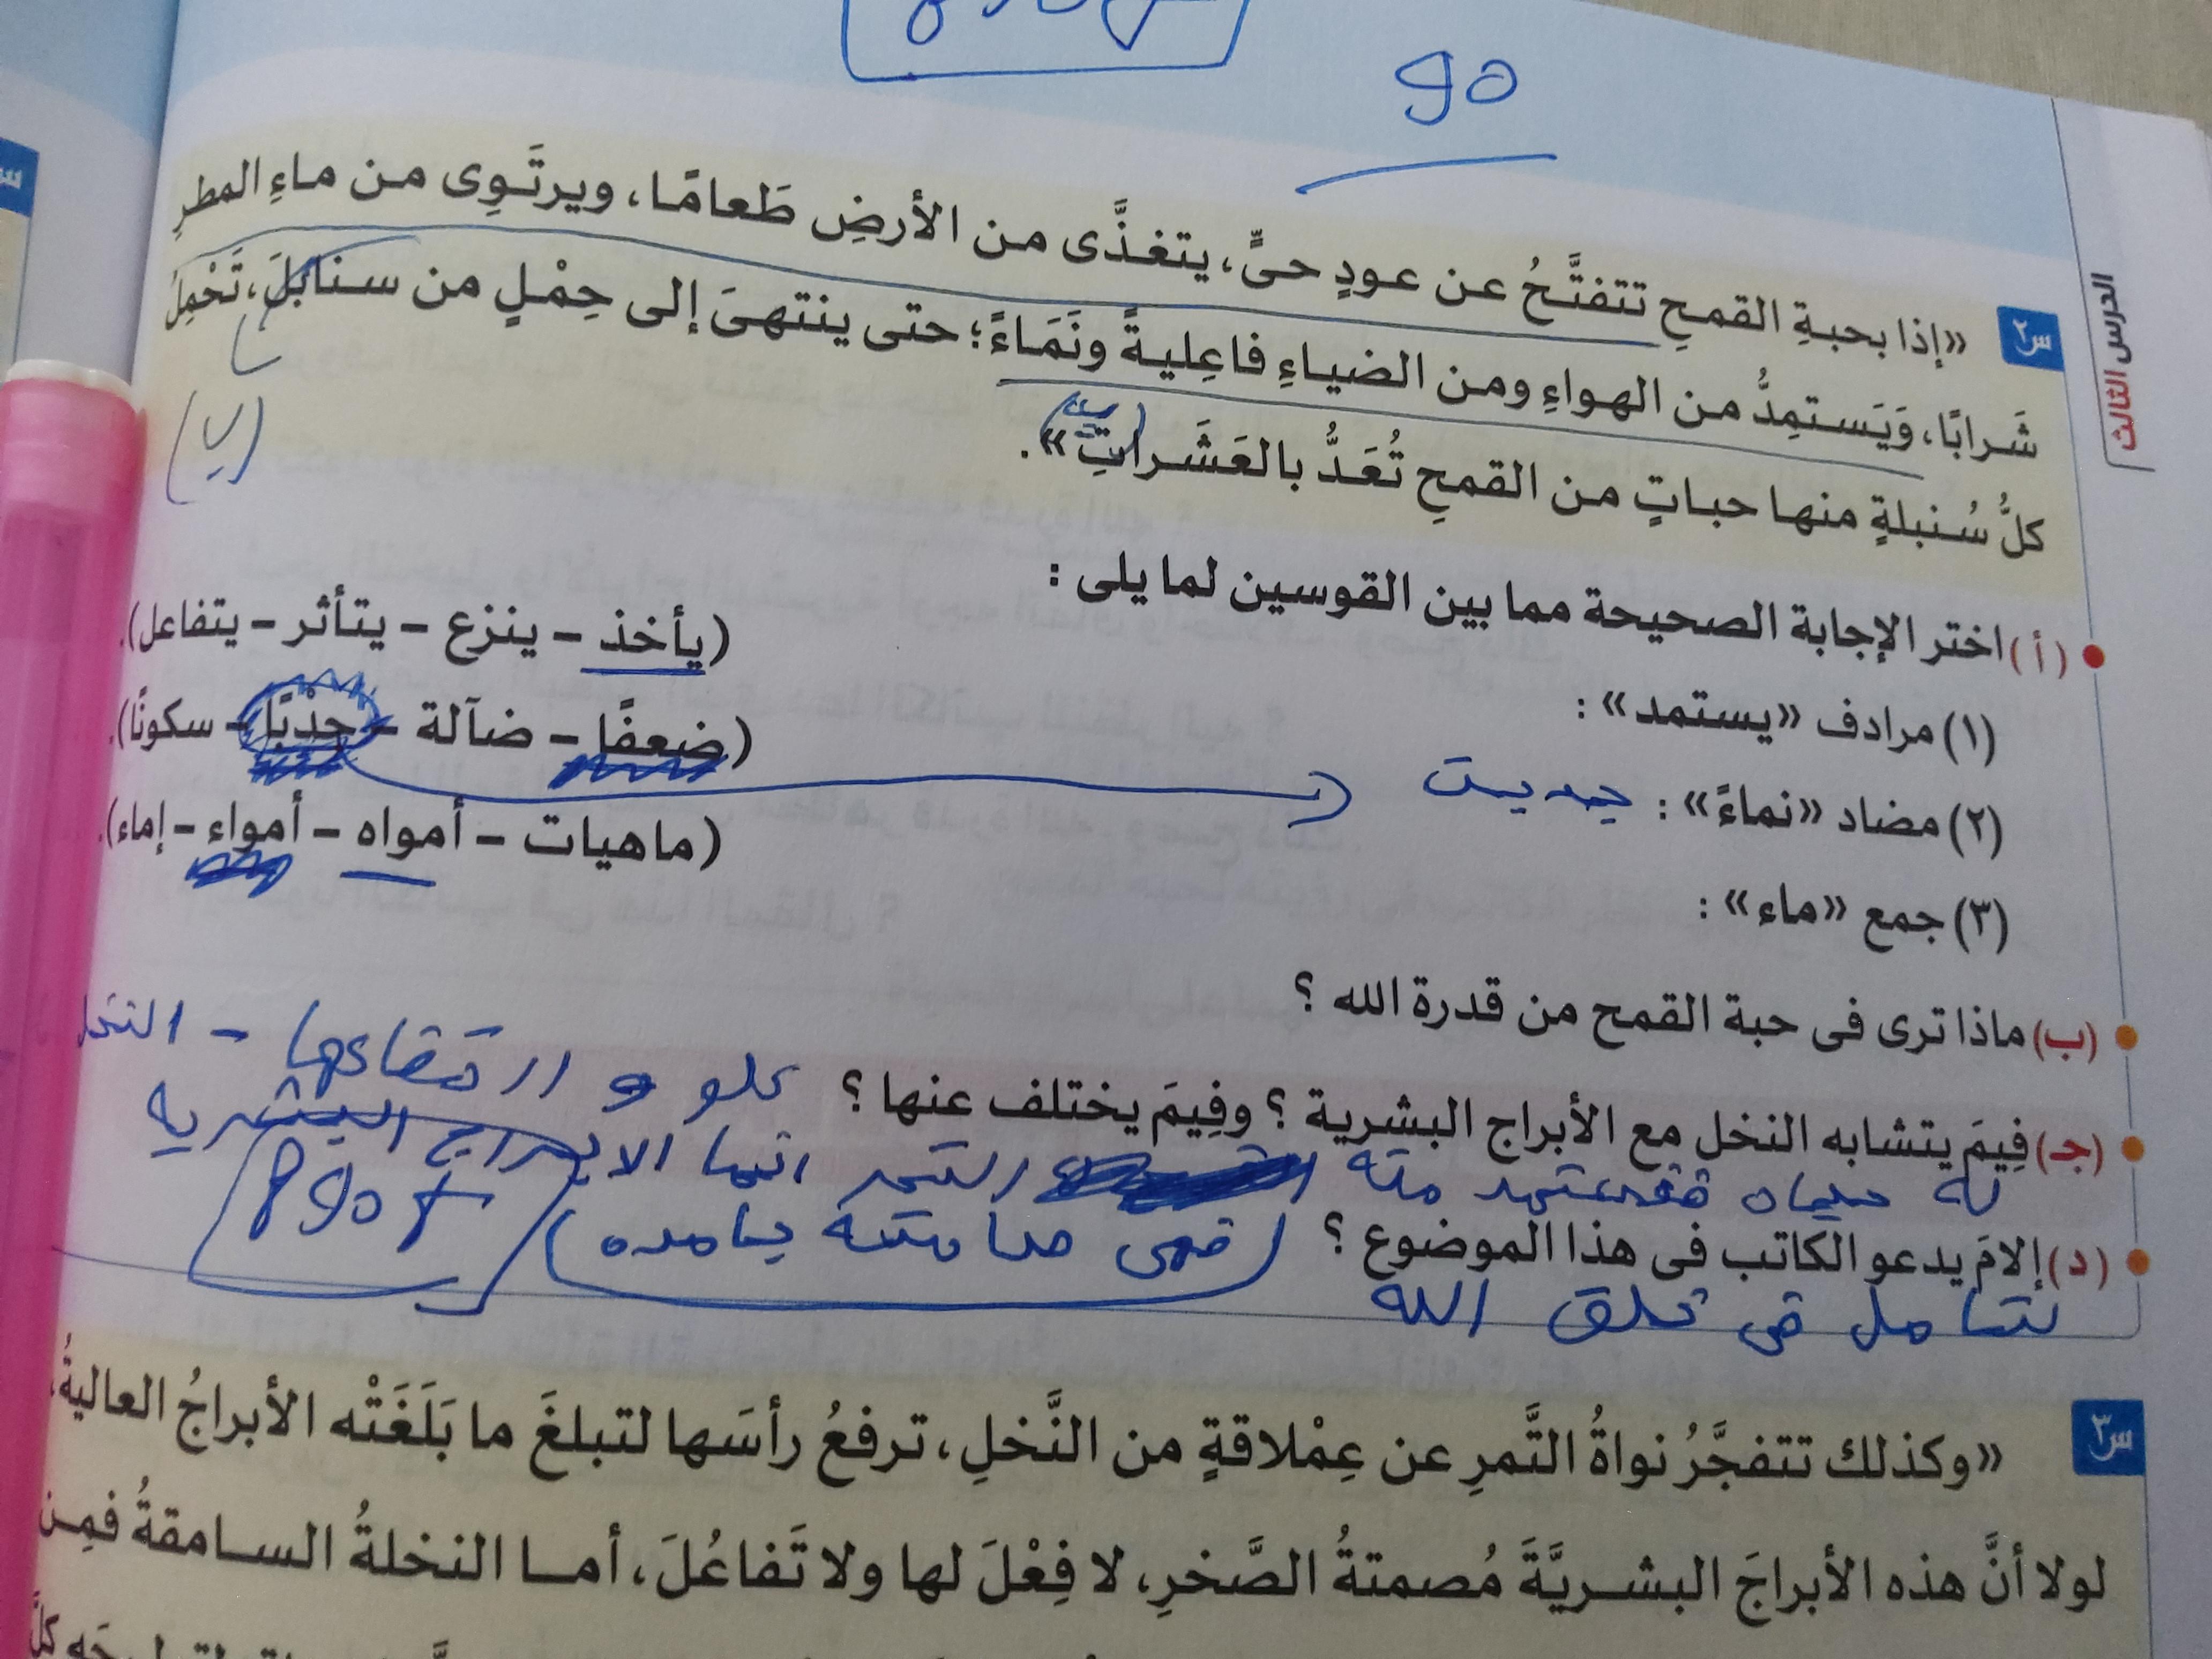 95
الدرس الثالث
س٢ «إذا بحبةِ القمحِ تتفتَّحُ عن عودٍ حىٍّ، يتغذَّى من الأرضِ طَعامًا، ويرتَوِى من ماءِ المطرِ
شَرابًا، وَيَستمِدُّ من الهواءِ ومن الضياءِ فاعِليةً ونَمَاءً؛ حتى ينتهىَ إلى حِمْلٍ من سنابلَ، تَحْمِلُ
كلُّ سُنبلةٍ منها حباتٍ من القمحِ تُعَدُّ بالعَشَراتِ».
(ب)
(أ) اختر الإجابة الصحيحة مما بين القوسين لما يلى :
(١) مرادف «يستمد» : (يأخذ – ينزع – يتأثر – يتفاعل).
(٢) مضاد «نماءً» : (ضعفًا – ضآلة – جدْبًا – سكونًا).
(٣) جمع «ماء» : (ماهيات – أمواه – أمواء – إماء).
(ب) ماذا ترى فى حبة القمح من قدرة الله ؟
(جـ) فِيمَ يتشابه النخل مع الأبراج البشرية ؟ وفِيمَ يختلف عنها ؟ علو و ارتفاعها - النخل
له حياه منه التمر انما الابراج البشريه
(د) إلامَ يدعو الكاتب فى هذا الموضوع ؟ (فهى صامته جامده)
فى خلق الله
س٣ «وكذلك تتفجَّرُ نواةُ التَّمرِ عن عِمْلاقةٍ من النَّخلِ، ترفعُ رأسَها لتبلغَ ما بَلَغَتْه الأبراجُ العاليةُ،
لولا أنَّ هذه الأبراجَ البشريَّةَ مُصمتةُ الصَّخرِ، لا فِعْلَ لها ولا تَفاعُلَ، أما النخلةُ السامقةُ فمِن